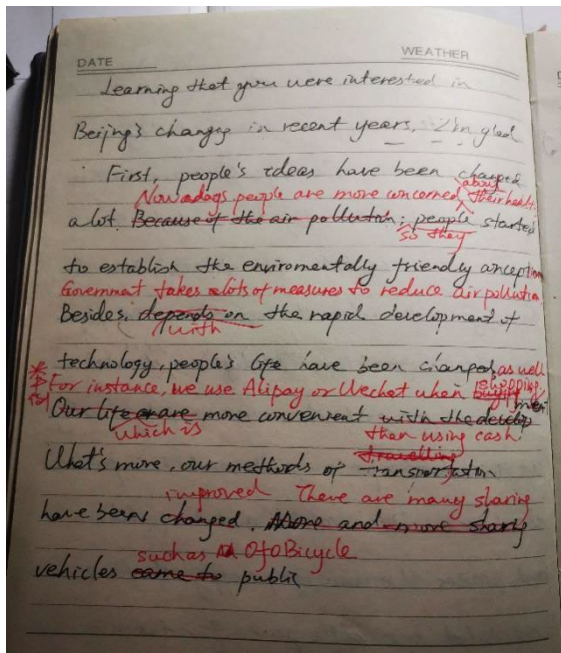 DATE WEATHER
Learning that you were interested in
Beijing's changes in recent years, I'm glad
First, people's ideas have been changed
Nowadays people are more concerned about their health.
a lot. Because of the air pollution, people started
so they
to establish the enviromentally friendly conception
Government takes lots of measures to reduce air pollution
Besides, depends on the rapid development of
with
technology, people's life have been changed as well
For instance, we use Alipay or Wechat when buying shopping
Our life are more convenient with the develop ment
which is than using cash
travelling
What's more, our methods of transportation
improved There are many sharing
have been changed. More and more sharing
such as Ofo Bicycle
vehicles came to public